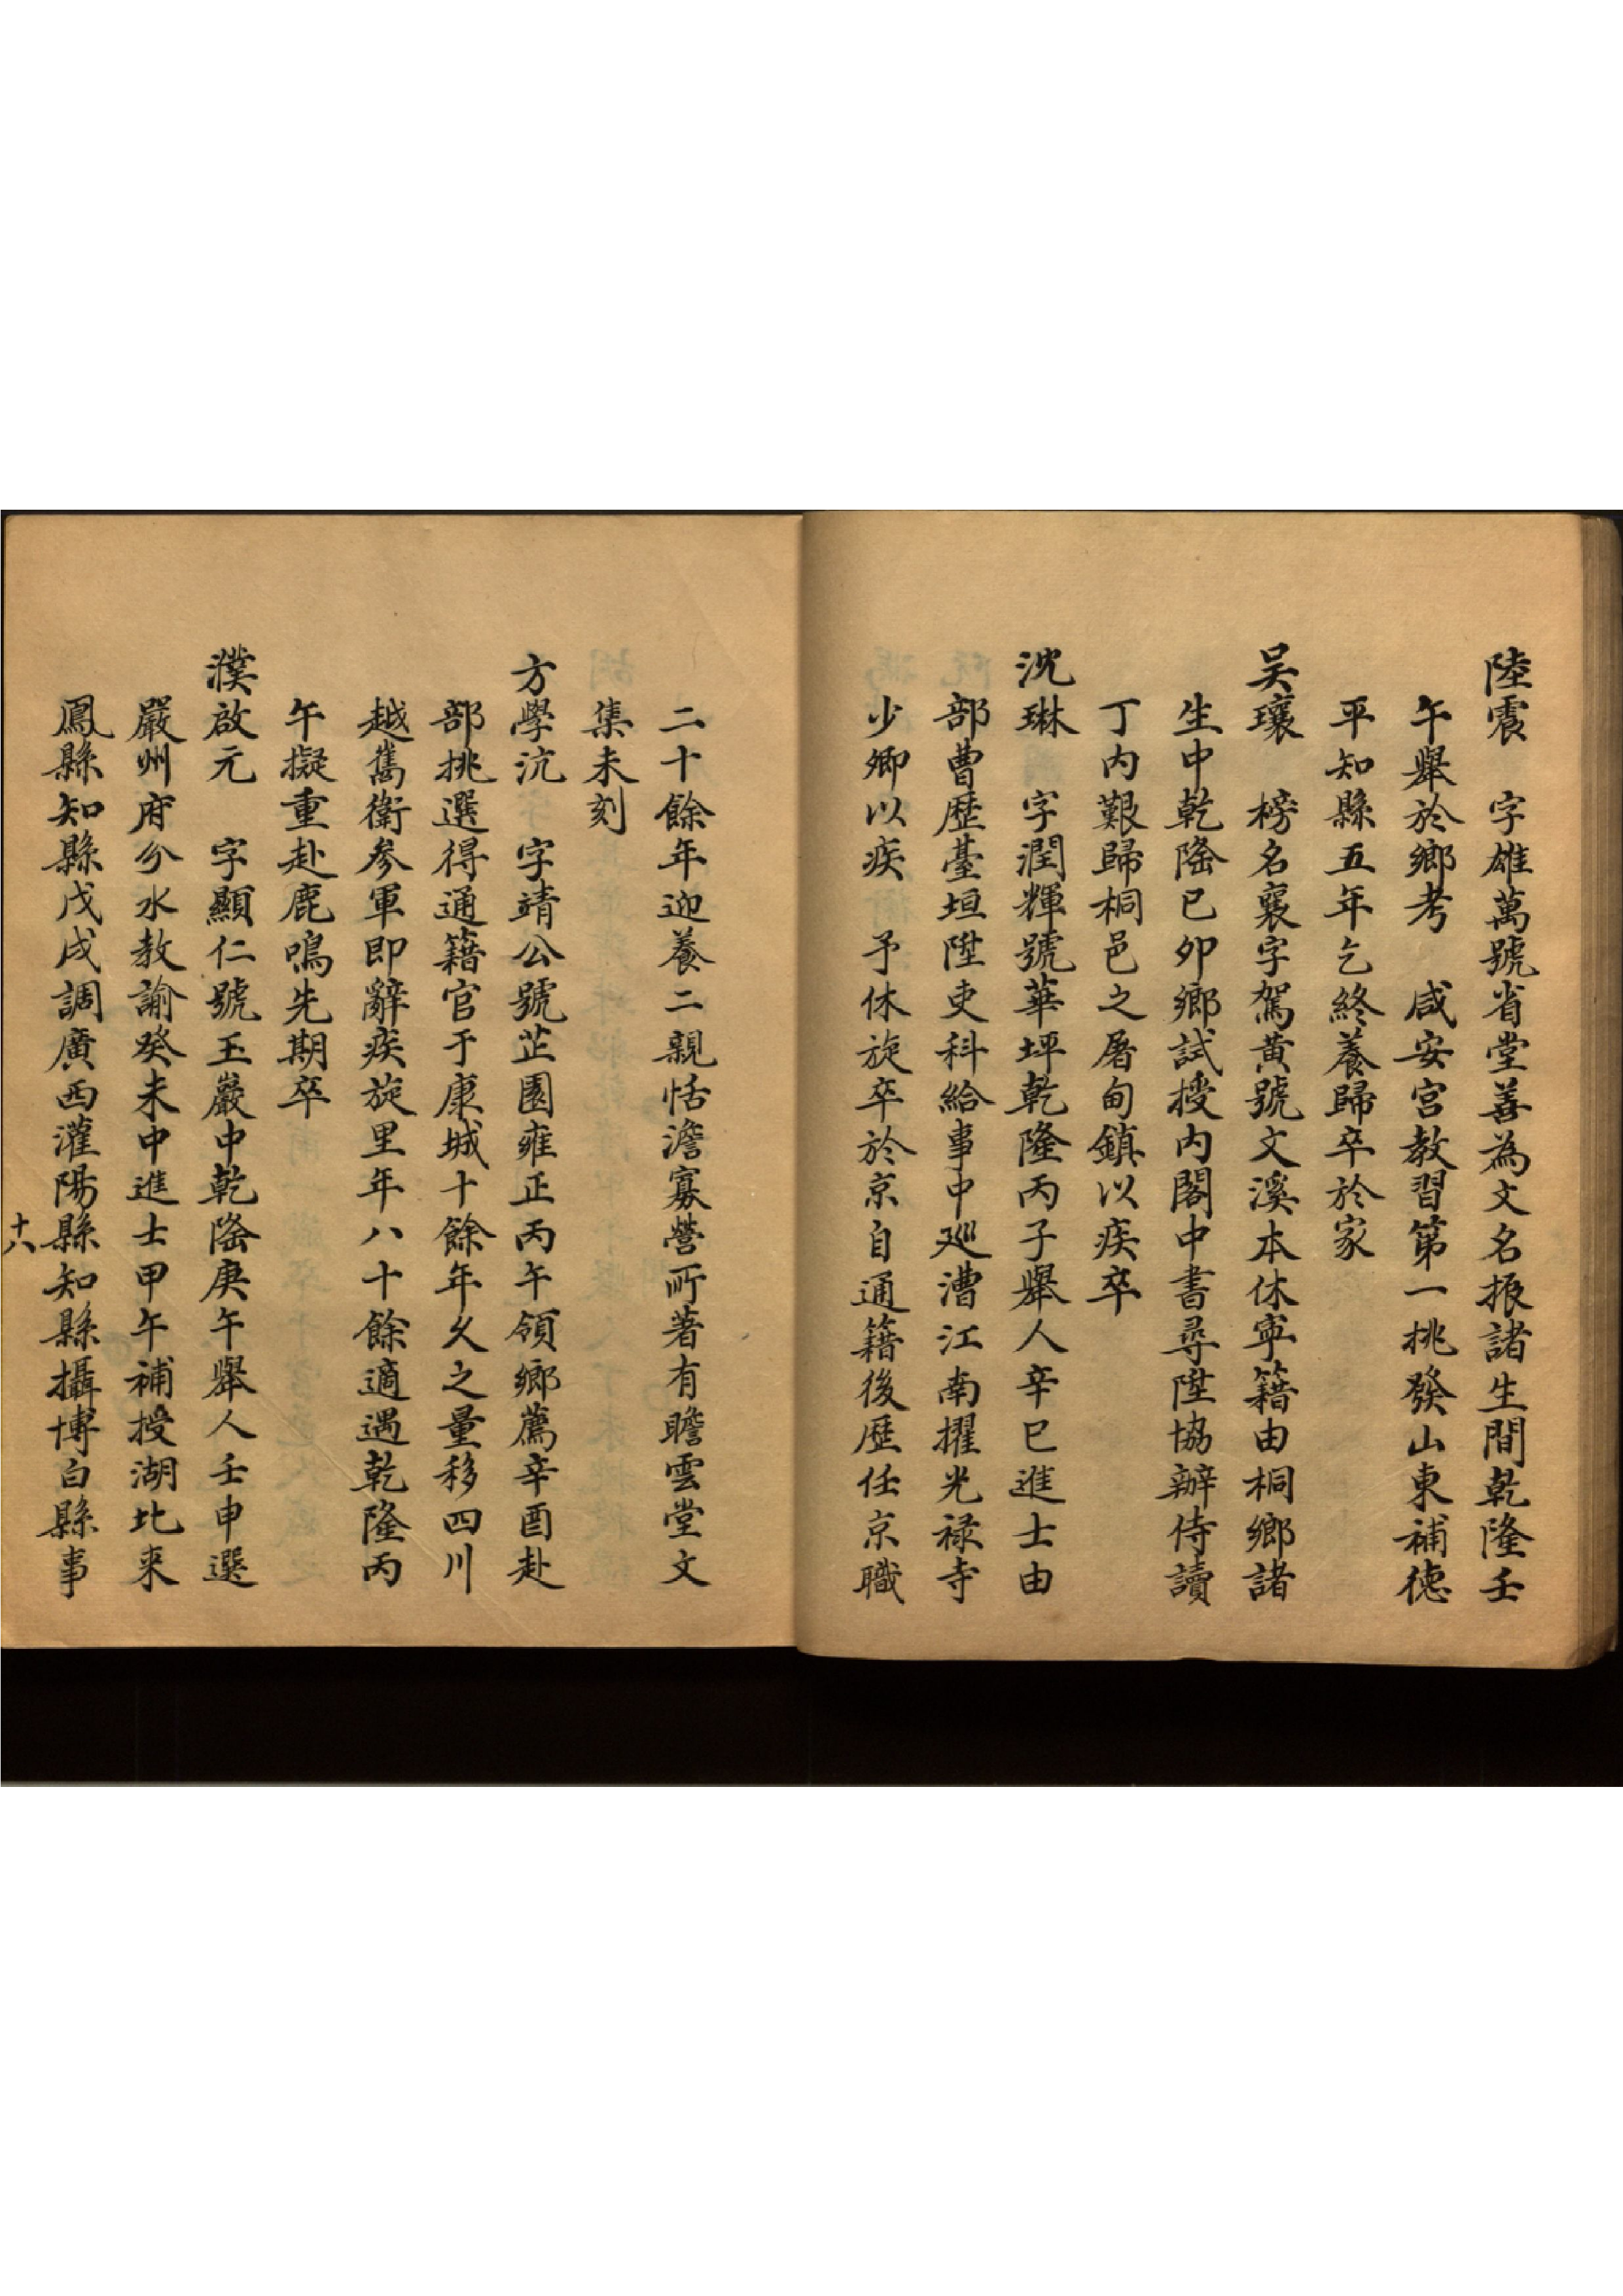 陸震　字雄萬號省堂善為文名振諸生間乾隆壬
午舉於鄉考　咸安宮教習第一挑發山東補德
平知縣五年乞終養歸卒於家
吴瓖　榜名襄字駕黃號文溪本休寧籍由桐鄉諸
生中乾隆已夘鄉試授内閣中書尋陞協辦侍讀
丁内艱歸桐邑之屠甸鎮以疾卒
沈琳　字潤輝號華坪乾隆丙子舉人辛巳進士由
部曹歷臺垣陞吏科給事中巡漕江南擢光禄寺
少卿以疾　予休旋卒於京自通籍後歷任京職
二十餘年迎養二親恬澹寡營所著有瞻雲堂文
集未刻
方學沆　字靖公號芷園雍正丙午領鄉薦辛酉赴
部挑選得通籍官于康城十餘年久之量移四川
越雟衛参軍即辭疾旋里年八十餘適遇乾隆丙
午擬重赴鹿鳴先期卒
濮啟元　字顯仁號玉巖中乾隆庚午舉人壬申選
嚴州府分水教諭癸未中進士甲午補授湖北来
鳳縣知縣戊戌調廣西灌陽縣知縣攝博白縣事
十八